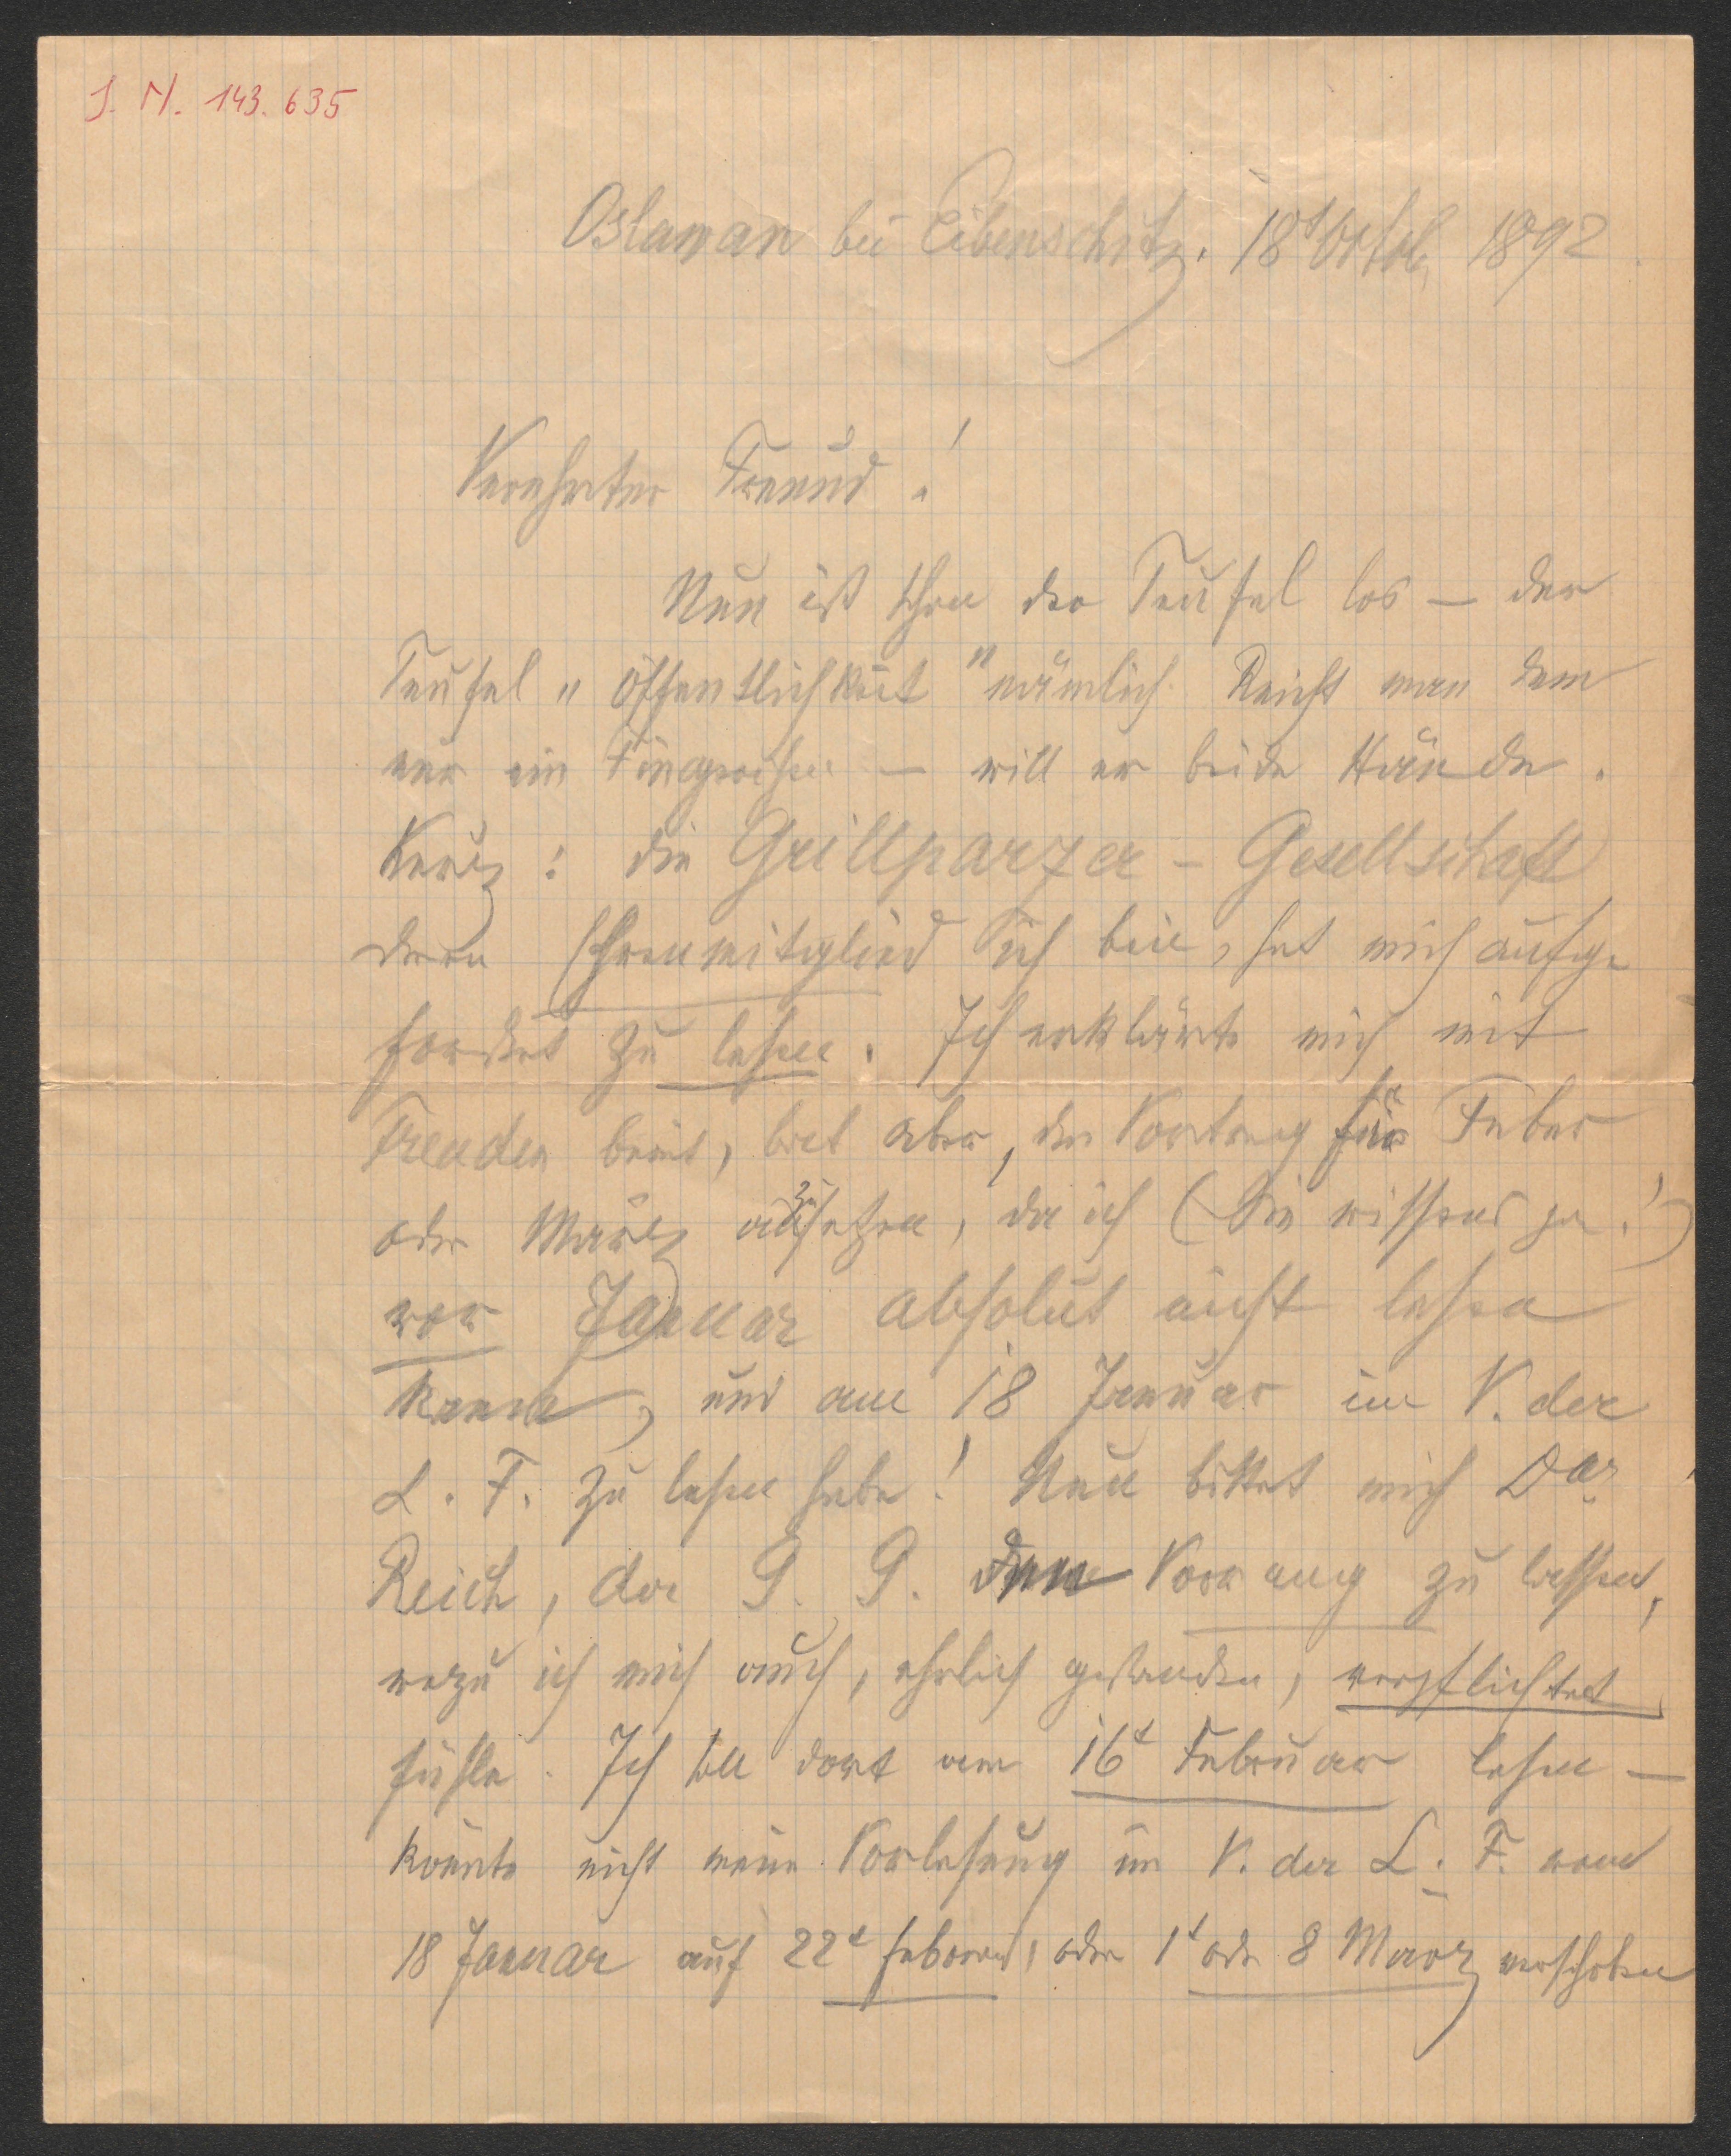 J. N. 143.635
Oslawan bei Eibenschitz. 18t Octob. 1892
Verehrter Freund!
Nun ist schon der Teufel los – der
Teufel „Öffentlichkeit" nämlich. Reicht man dem
nur ein Fingerchen – will er beide Hände.
Kurz: die Grillparzer-Gesellschaft
deren Ehrenmitglied ich bin, hat mich aufge-
fordert zu lesen. Ich erklärte mich mit
Freuden bereit, bat aber, den Vortrag für Feber
oder März anzusetzen, da ich (Sie wissens ja!)
vor Januar absolut nicht lesen
kann, und am 18 Januar im V. der
L. F. zu lesen habe! Nun bittet mich Dor
Reich, der G. G. den Vorrang zu lassen,
wozu ich mich auch, ehrlich gestanden, verpflichtet
fühle. Ich soll dort am 16t Februar lesen –
könnte nicht meine Vorlesung im V. der L. F. vom
18 Januar auf 22t Februar, oder 1t oder 8 März verschoben